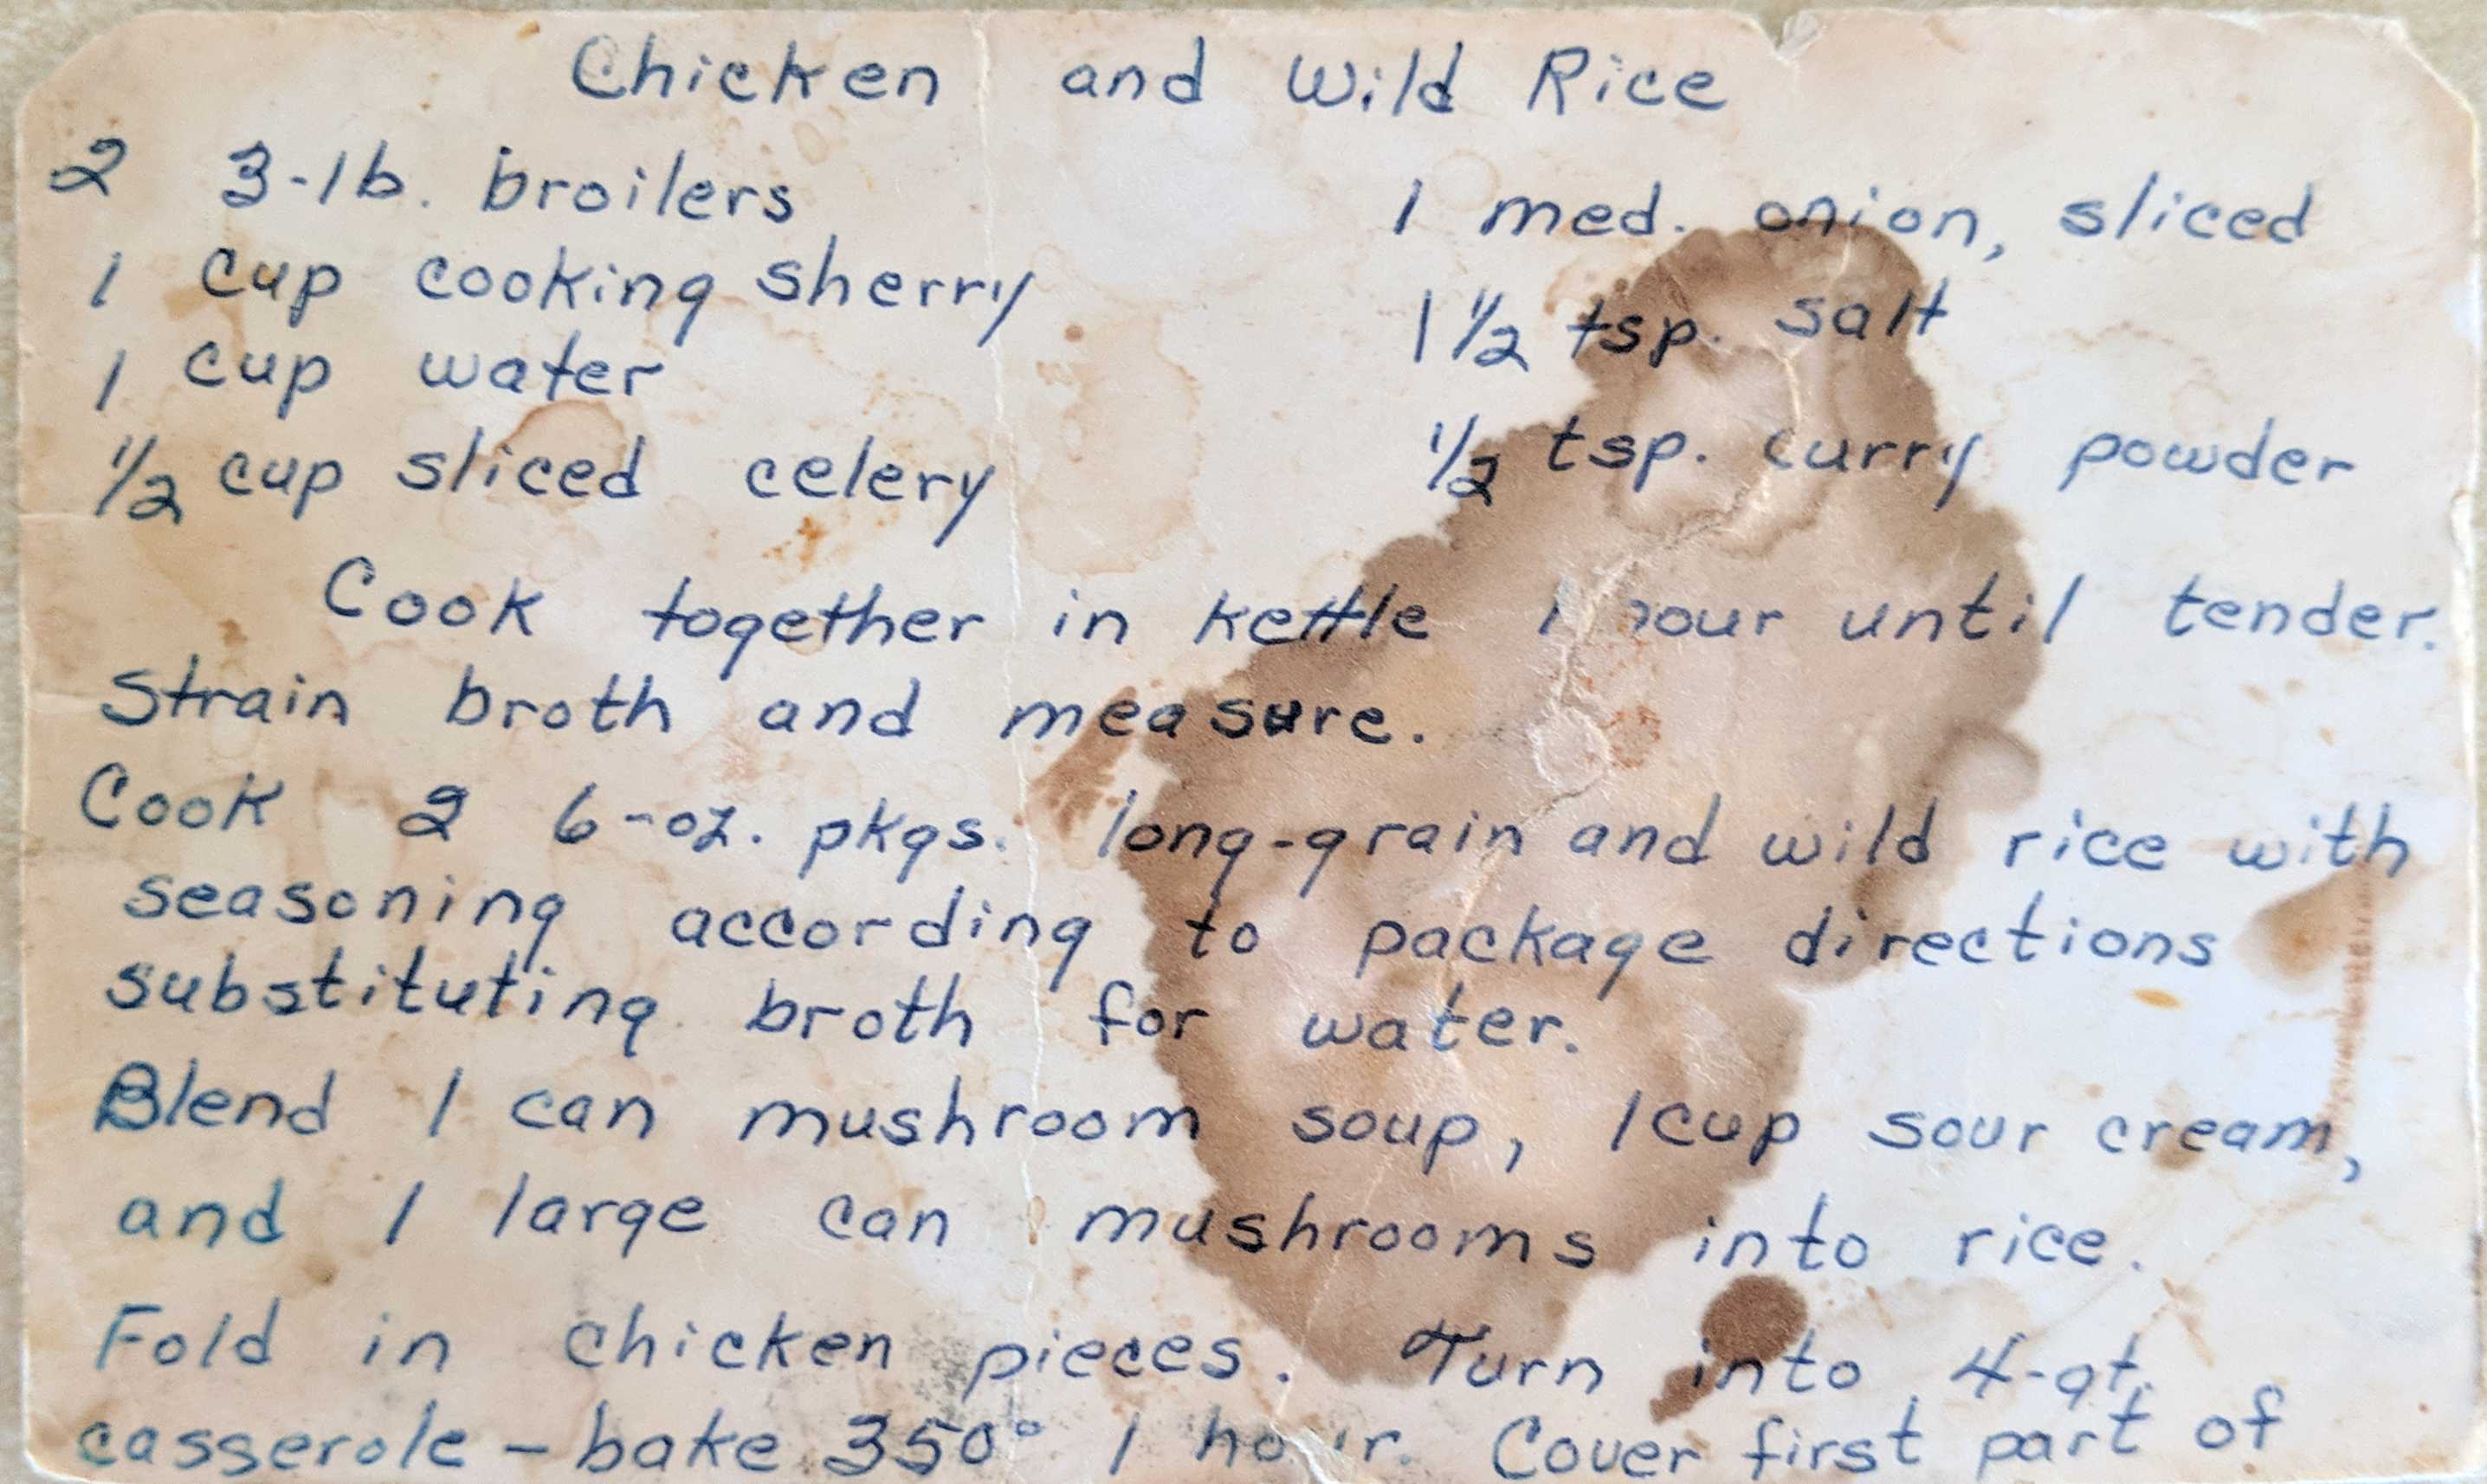 Chicken and Wild Rice
2 3-lb. broilers
1 cup cooking sherry
1 cup water
1/2 cup sliced celery
1 med. onion, sliced
1 1/2 tsp. salt
1/2 tsp. curry powder
Cook together in kettle 1 hour until tender.
Strain broth and measure.
Cook 2 6-oz. pkgs. long-grain and wild rice with
seasoning according to package directions
substituting broth for water.
Blend 1 can mushroom soup, 1 cup sour cream,
and 1 large can mushrooms into rice.
Fold in chicken pieces. Turn into 4-qt.
casserole - bake 350° 1 hour. Cover first part of